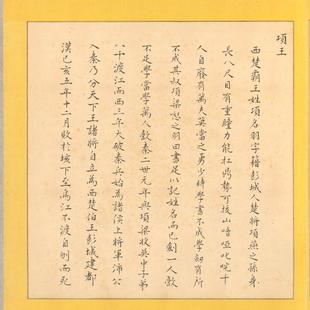 項王
西楚霸王姓項名羽字籍彭城人楚將項燕之孫身
長八尺目有重瞳力能扛鼎勢可拔山喑啞叱咤千
人自廢有萬夫莫當之勇少時學書不成學劍有所
不成其叔項梁怒之羽曰書足以記姓名而已劍一人敵
不足學當學萬人敵秦二世元年與項梁收吳中子弟
八千渡江而西三年大破秦兵始為諸侯上將軍沛公
入秦乃分天下王諸將自立為西楚伯王彭城建都
漢己亥五年十二月敗於垓下至烏江不渡自刎而死